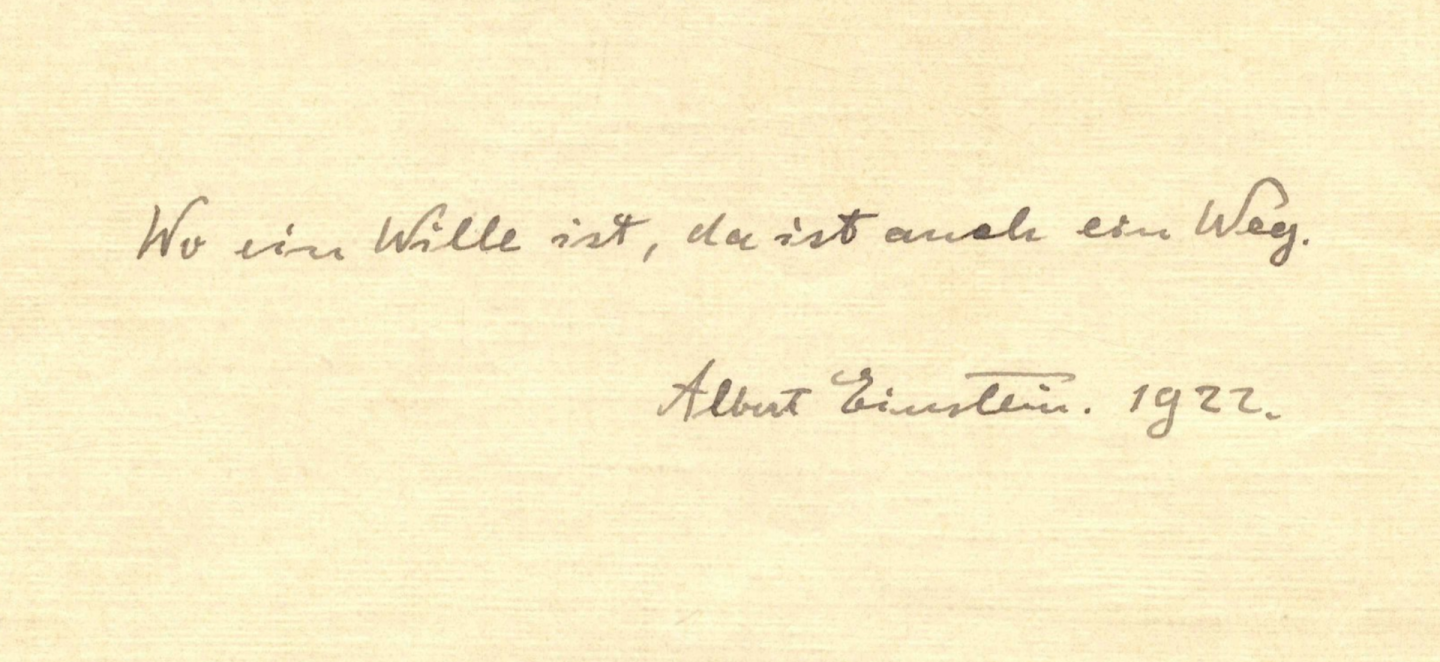 Wo ein Wille ist, da ist auch ein Weg.
Albert Einstein. 1922.